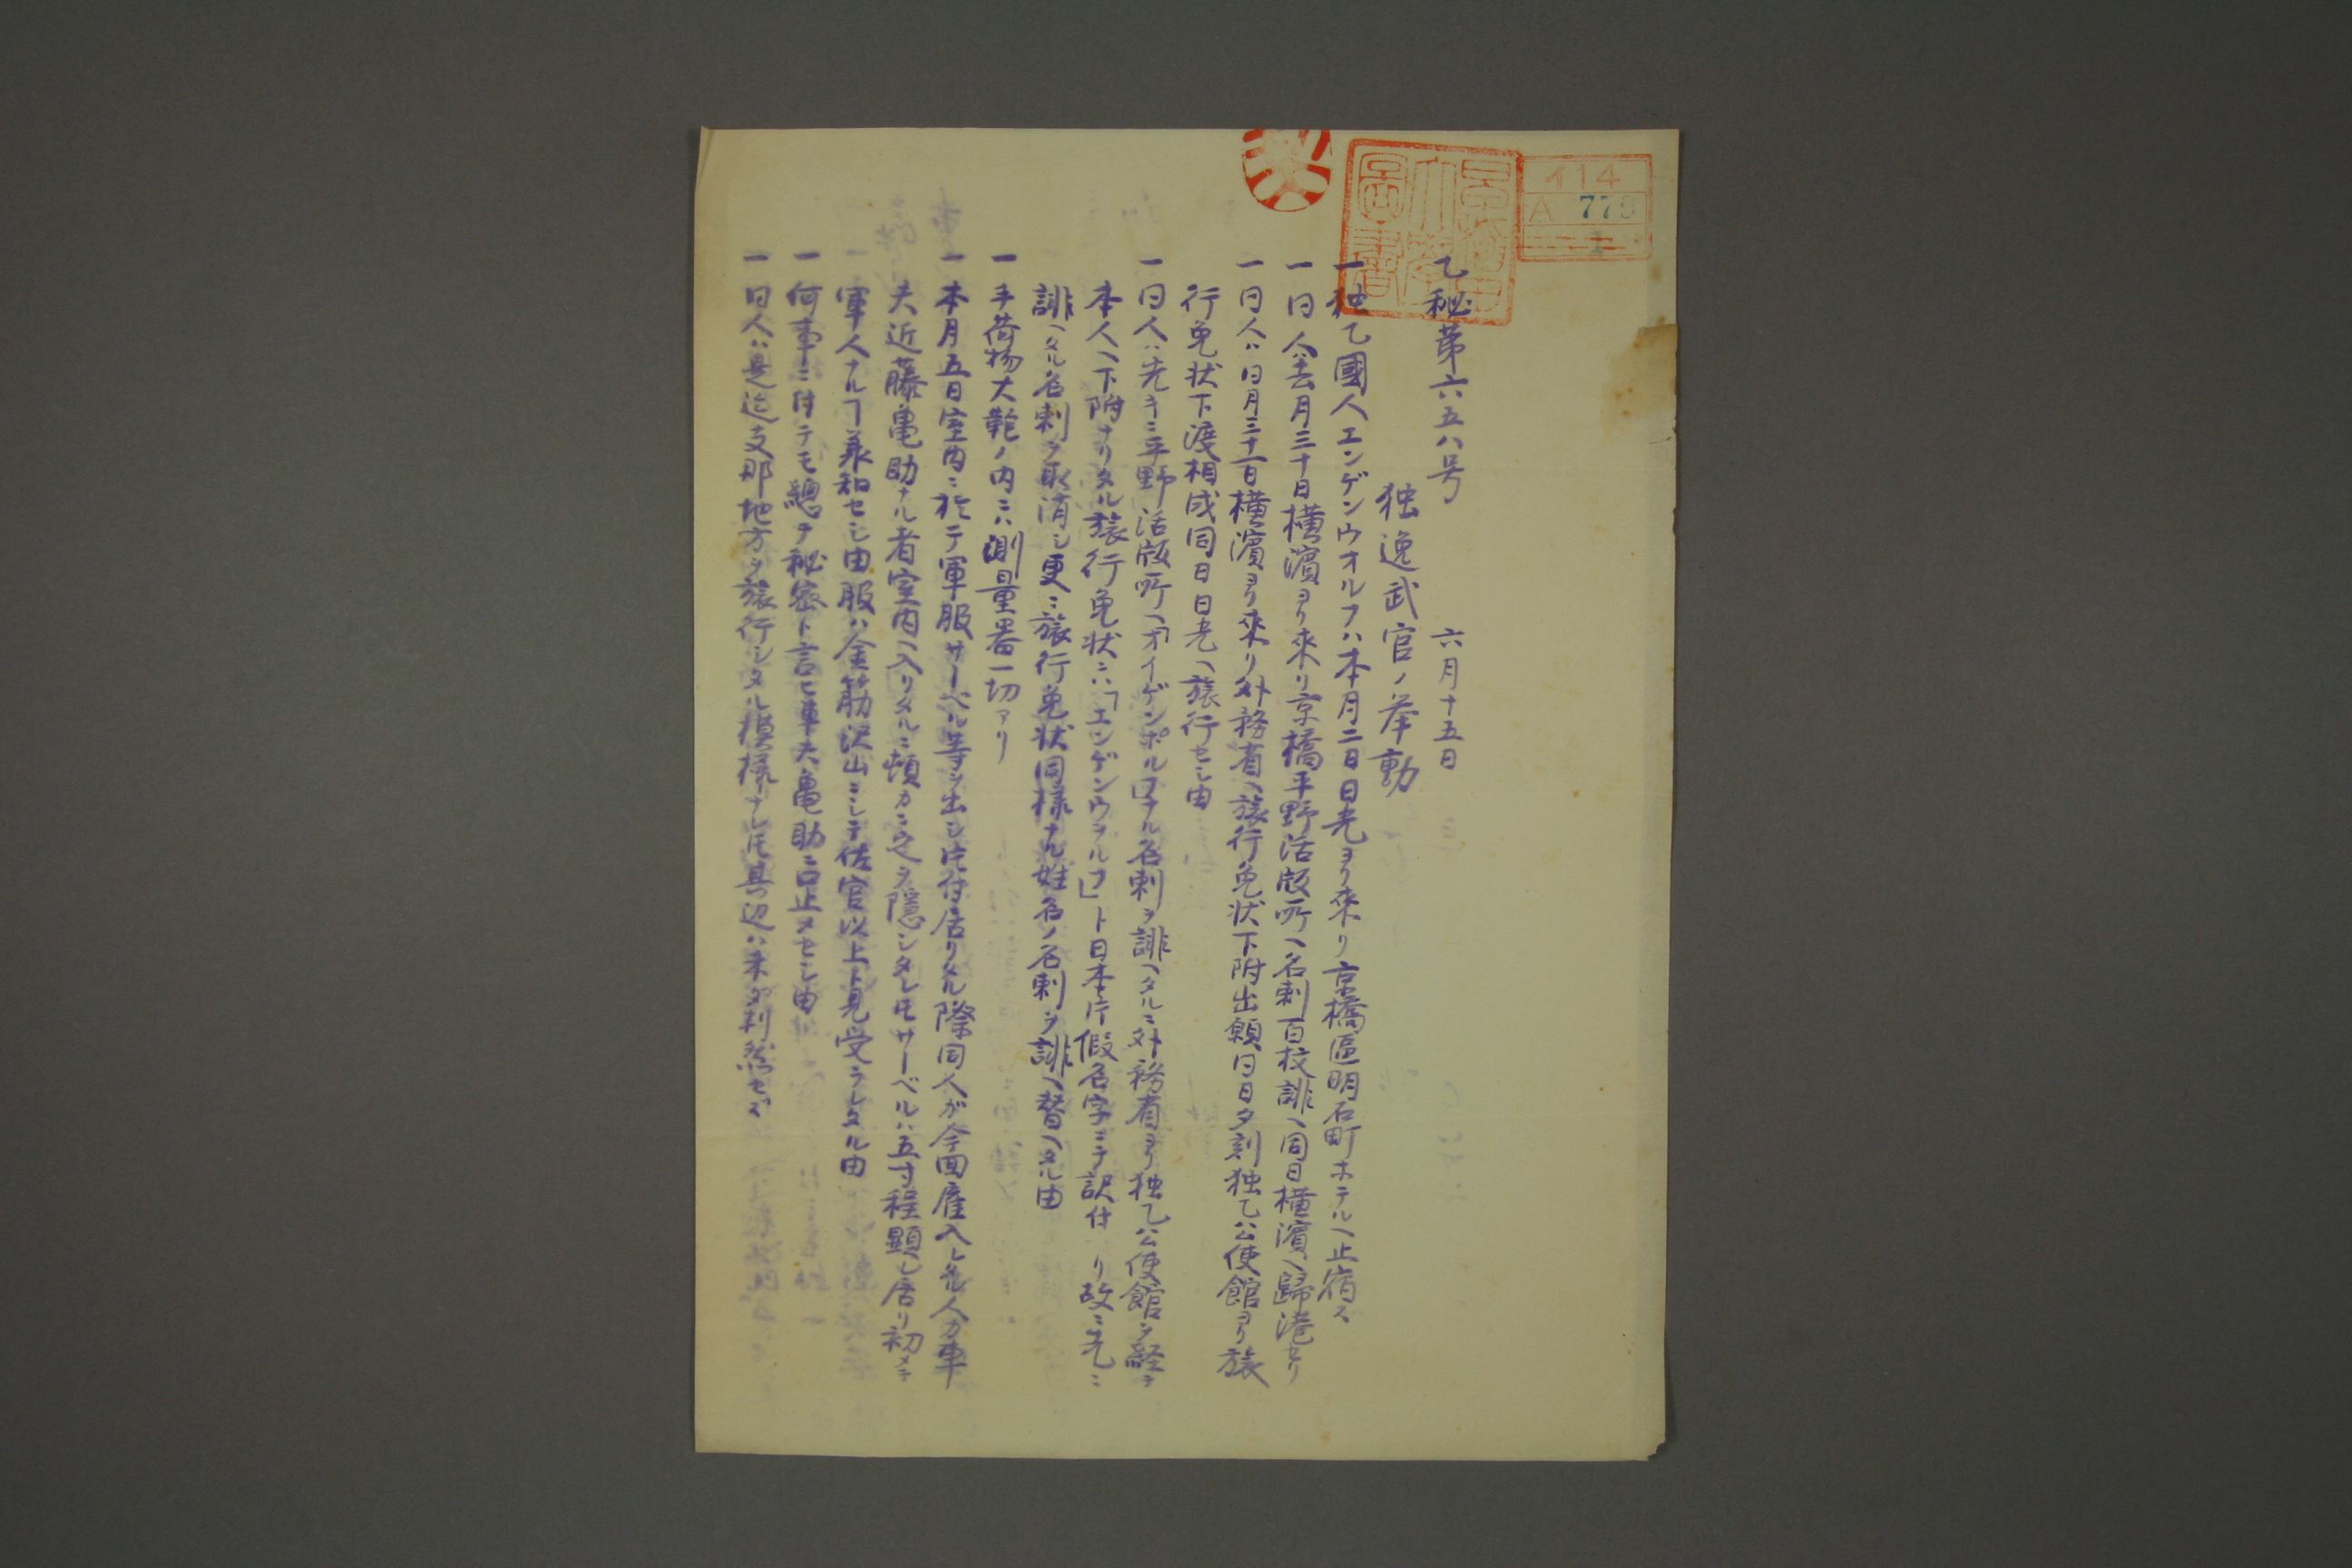 イ14
A 779
1
乙秘第六五八号 六月十五日
独逸武官ノ挙動
一独乙國人エンゲンウオルフハ本月二日日光ヨリ来リ京橋區明石町ホテルヘ止宿ス
一同人ハ去月三十日横濱ヨリ来リ京橋平野活版所ヘ名刺百枚誂ヘ同日横濱ヘ歸港セリ
一同人ハ同月三十一日横濱ヨリ来リ外務省ヘ旅行免状下附出願同日夕刻独乙公使館ヨリ旅
行免状下渡相成同日日光ヘ旅行セシ由
一同人ハ先キニ平野活版所ヘ「オイゲンボルフ」ナル名刺ヲ誂ヘタルニ外務省ヨリ独乙公使館ヲ経テ
本人ヘ下附ナリタル旅行免状ニハ「エンゲンウヲルフ」ト日本片假名字ニテ訳付リ故ニ先ニ
誂ヘタル名刺ヲ取消シ更ニ旅行免状同様ナル姓名ノ名刺ヲ誂ヘ替ヘタル由
一手荷物大鞄ノ内ニハ測量器一切アリ
一本月五日室内ニ於テ軍服サーベル等ヲ出シ片付居リタル際同人ガ今回雇入レタル人力車
夫近藤亀助ナル者室内ヘ入リタルニ頓カニ之ヲ隠シタレ𪜈サーベルハ五寸程顕レ居リ初メテ
軍人ナルヿ承知セシ由服ハ金筋沢山ニシテ佐官以上ト見受ラレタル由
一何事ニ付テモ總テ秘密ト言ヒ車夫亀助ニ口止メセシ由
一同人ハ是迄支那地方ヲ旅行シタル模様ナレ𪜈其辺ハ未ダ判然セズ